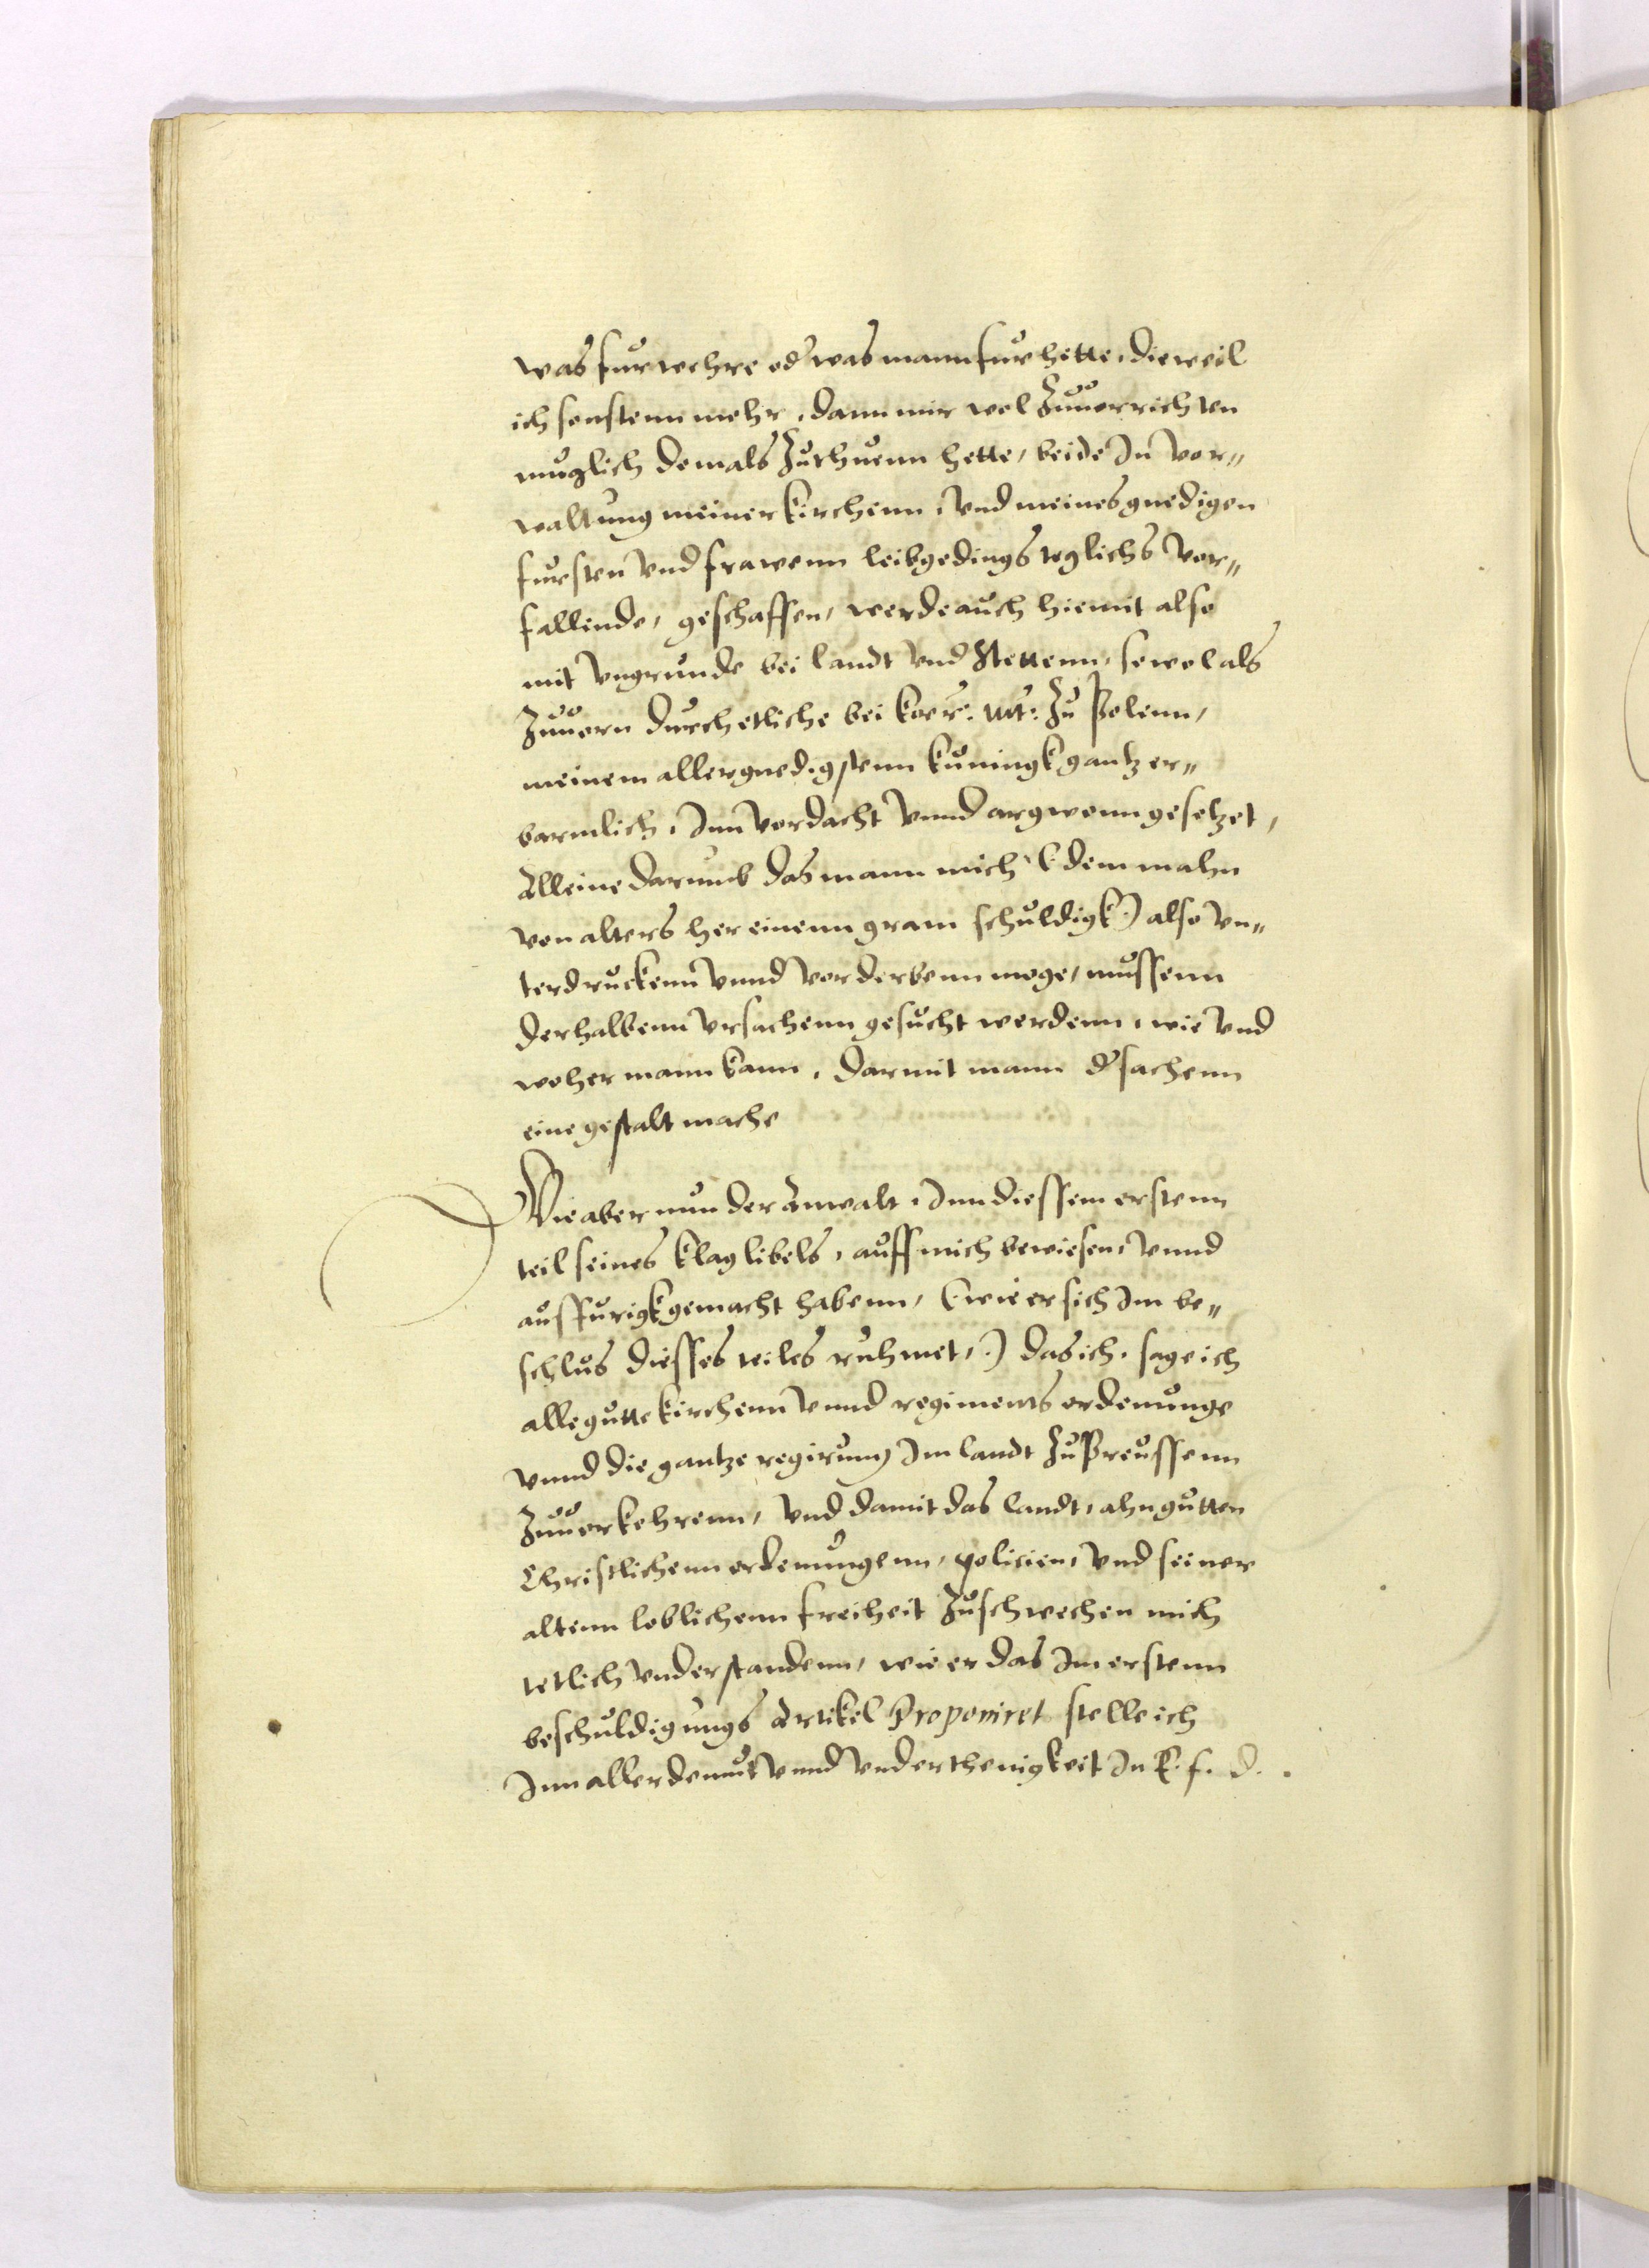 was fur wehre od' was mann fur hette, dieweil
ich sonstenn mehr, dann mir wol zuuorrichten
muglich domals zuthuenn hette, beide In vor„
waltung meiner kirchenn, vnd meines gnedigen
fursten vnd frawenn leibgedings teglichs vor„
fallende, geschaffen, werde auch hiemit also
mit vngrunde bei landt vnd Stettenn, sowol als
zuuorn durch etliche bei koer: Mt: zu Polenn,
meinem allergnedigstenn kuningk gantz er„
barmlich, Inn vordacht vnnd argwonn gesetzet,
Alleine darumb das mann mich (: dem mahn
von alters her einenn gram schuldigk:) also vn„
terdruckenn vnnd vorderbenn moge, mussenn
derhalbenn vrsachenn gesucht werdenn, wie vnd
woher mann kann, darmit mann d' sachenn
eine gestalt mache
Wie aber nun der Anwalt, Inn diessem erstenn
teil seines klaglibels, auff mich bewiesen, vnnd
ausfurigk gemacht habenn, (: wie er sich Im be„
schlus diesses teiles ruhmet, :) das ich, sage ich
alle gutte kirchenn vnnd regiments ordenunge
vnnd die gantze regirung Im landt zu Preussenn
zuuorkehrenn, vnd damit das landt, ahn gutten
Christlichenn ordenungenn, policien, vnd seiner
altenn loblichenn freiheit zuschwechen mich
tetlich vnderstandenn, wie er das Im erstenn
beschuldigungs Artikel Proponiret stelle ich
Inn aller demut vnnd vnderthenigkeit In E. f. D.